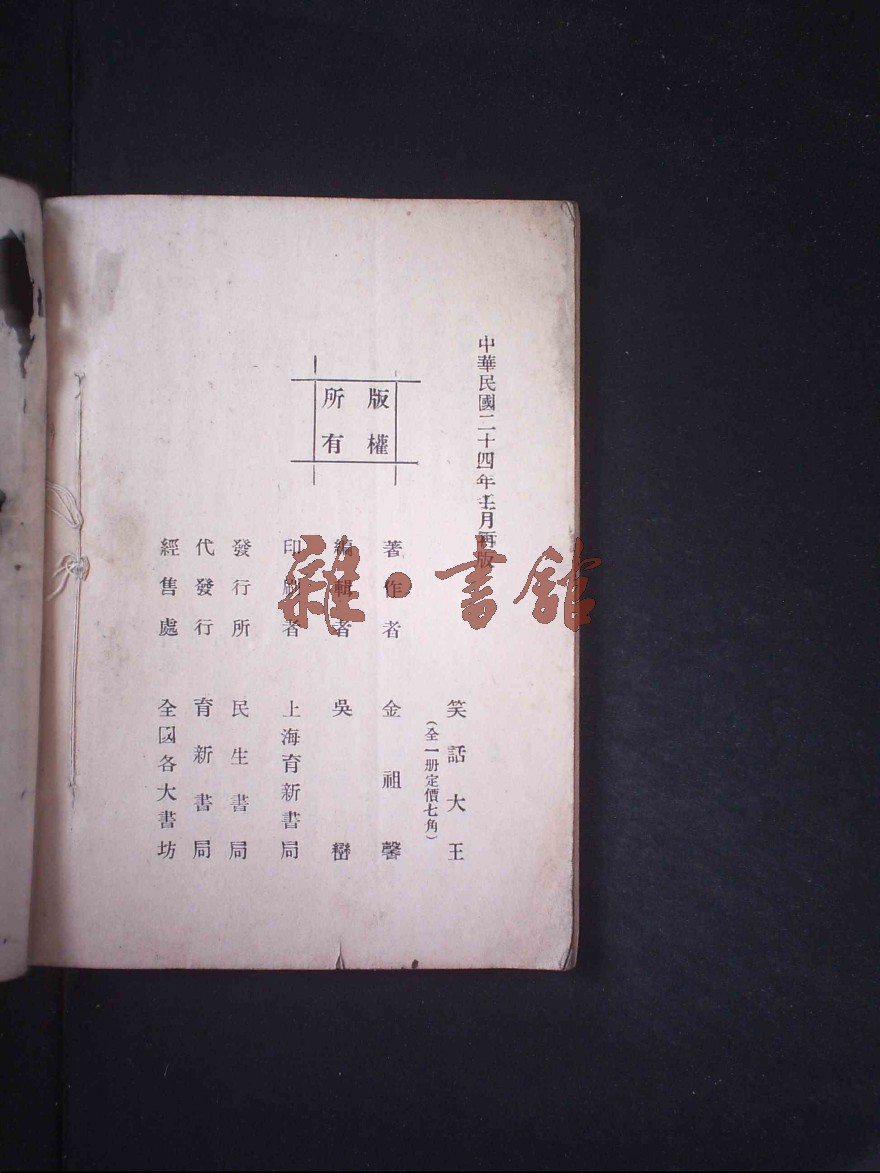 中華民國二十四年十二月再版
笑話大王
(全一册定價七角)
版權
所有
著作者 金祖馨
編輯者 吳巒
印刷者 上海育新書局
發行所 民生書局
代發行 育新書局
經售處 全國各大書坊
雜·書館